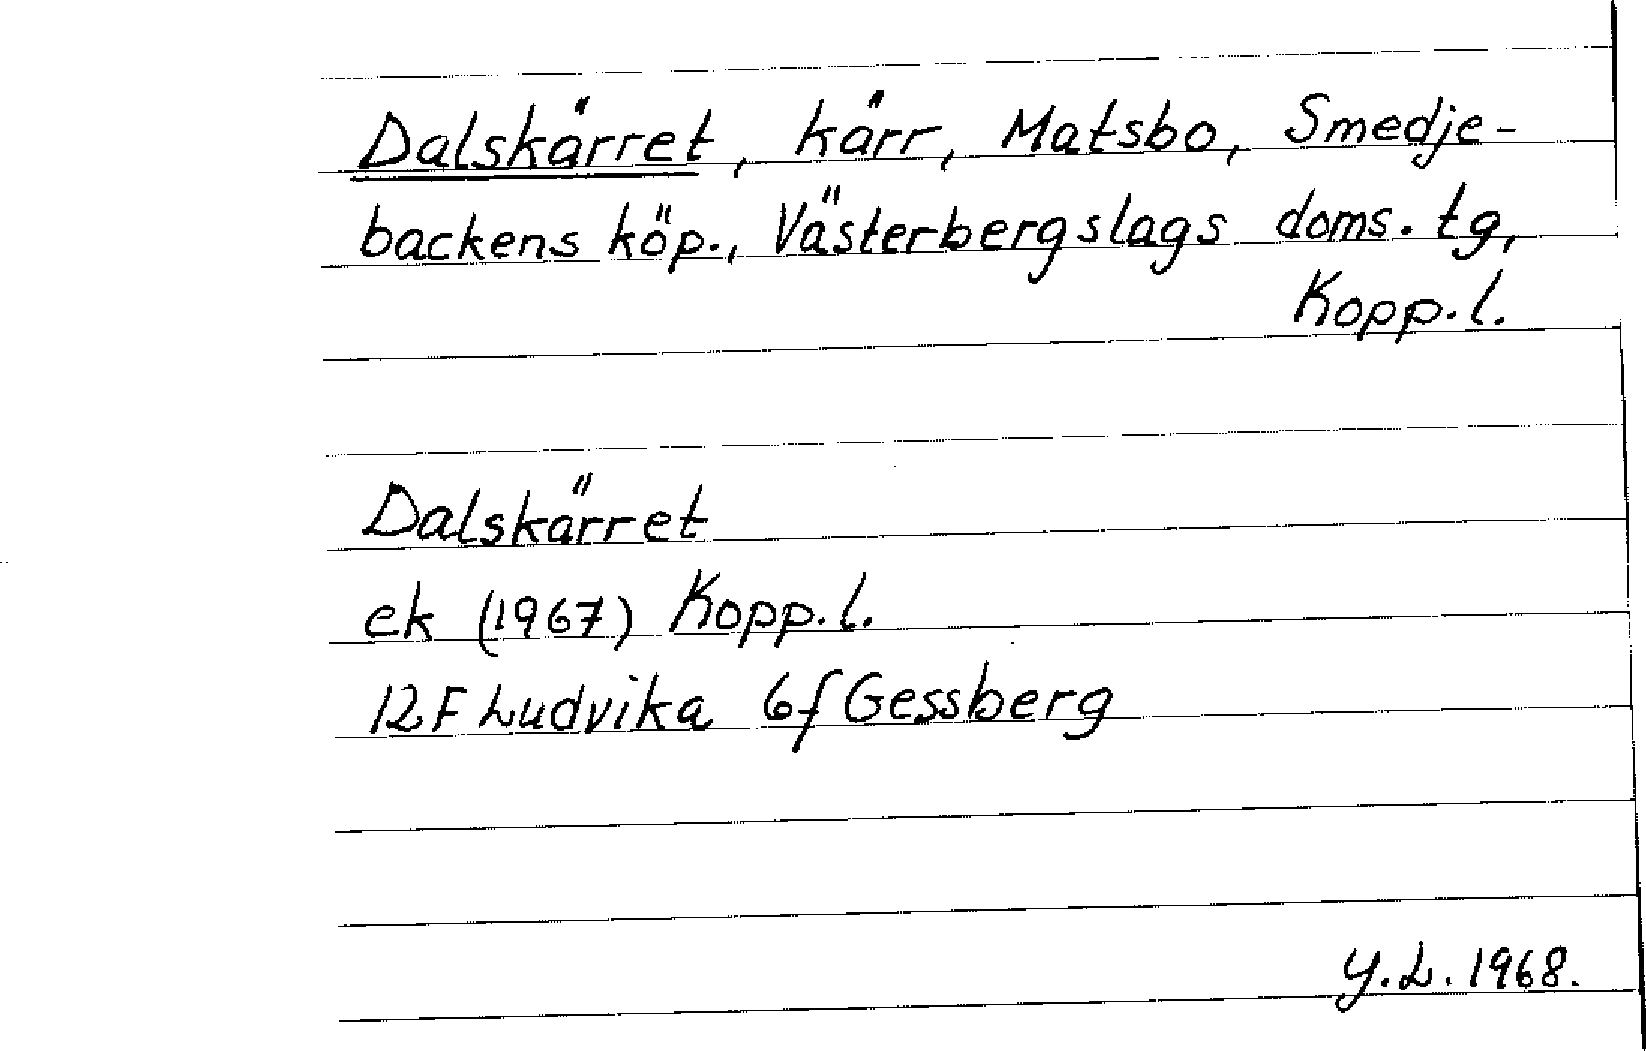 Dalskärret, kärr, Matsbo, Smedje-
backens köp., Västerbergslags doms. tg,
Kopp. l.
Dalskärret
ek (1967) Kopp. l.
12F Ludvika 6f Gessberg
Y. L. 1968.